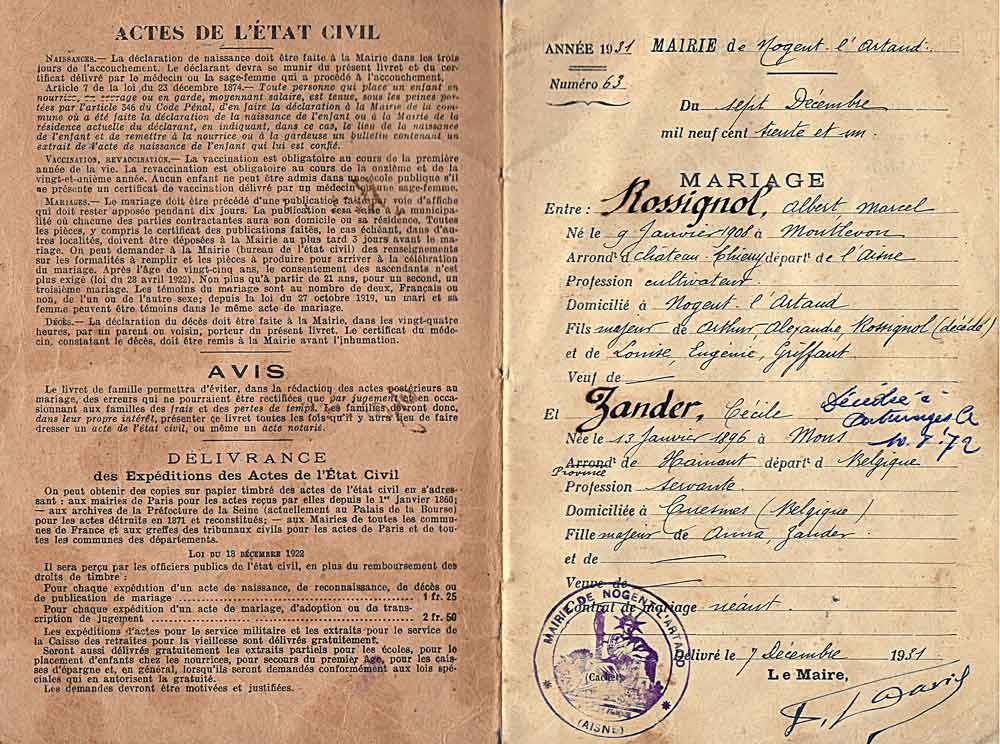 ACTES DE L'ÉTAT CIVIL
NAISSANCES.— La déclaration de naissance doit être faite à la Mairie dans les trois
jours de l'accouchement. Le déclarant devra se munir du présent livret et du cer-
tificat délivré par le médecin ou la sage-femme qui a procédé à l'accouchement.
Article 7 de la loi du 23 décembre 1874.— Toute personne qui place un enfant en
nourrice, en sevrage ou en garde, moyennant salaire, est tenue, sous les peines por-
tées par l'article 346 du Code Pénal, d'en faire la déclaration à la Mairie de la com-
mune où a été faite la déclaration de la naissance de l'enfant ou à la Mairie de la
résidence actuelle du déclarant, en indiquant, dans ce cas, le lieu de la naissance
de l'enfant et de remettre à la nourrice ou à la gardeuse un bulletin contenant un
extrait de l'acte de naissance de l'enfant qui lui est confié.
VACCINATION, REVACCINATION.— La vaccination est obligatoire au cours de la première
année de la vie. La revaccination est obligatoire au cours de la onzième et de la
vingt-et-unième année. Aucun enfant ne peut être admis dans une école publique s'il
ne présente un certificat de vaccination délivré par un médecin ou une sage-femme.
MARIAGES.— Le mariage doit être précédé d'une publication faite par voie d'affiche
qui doit rester apposée pendant dix jours. La publication sera faite à la municipa-
lité où chacune des parties contractantes aura son domicile ou sa résidence. Toutes
les pièces, y compris le certificat des publications faites, le cas échéant, dans d'au-
tres localités, doivent être déposées à la Mairie au plus tard 3 jours avant le ma-
riage. On peut demander à la Mairie (bureau de l'état civil) des renseignements
sur les formalités à remplir et les pièces à produire pour arriver à la célébration
du mariage. Après l'âge de vingt-cinq ans, le consentement des ascendants n'est
plus exigé (loi du 28 avril 1922). Non plus qu'à partir de 21 ans, pour un second, un
troisième mariage. Les témoins du mariage sont au nombre de deux, Français ou
non, de l'un ou de l'autre sexe; depuis la loi du 27 octobre 1919, un mari et sa
femme peuvent être témoins dans le même acte de mariage.
DÉCÈS.— La déclaration du décès doit être faite à la Mairie, dans les vingt-quatre
heures, par un parent ou voisin, porteur du présent livret. Le certificat du méde-
cin, constatant le décès, doit être remis à la Mairie avant l'inhumation.
AVIS
Le livret de famille permettra d'éviter, dans la rédaction des actes postérieurs au
mariage, des erreurs qui ne pourraient être rectifiées que par jugement et en occa-
sionnant aux familles des frais et des pertes de temps. Les familles devront donc,
dans leur propre intérêt, présenter ce livret toutes les fois qu'il y aura lieu de faire
dresser un acte de l'état civil, ou même un acte notarié.
DÉLIVRANCE
des Expéditions des Actes de l'État Civil
On peut obtenir des copies sur papier timbré des actes de l'état civil en s'adres-
sant : aux mairies de Paris pour les actes reçus par elles depuis le 1er janvier 1860;
— aux archives de la Préfecture de la Seine (actuellement au Palais de la Bourse)
pour les actes détruits en 1871 et reconstitués; — aux Mairies de toutes les commu-
nes de France et aux greffes des tribunaux civils pour les actes de Paris et de tou-
tes les communes des départements.
LOI DU 18 DÉCEMBRE 1922
Il sera perçu par les officiers publics de l'état civil, en plus du remboursement des
droits de timbre :
Pour chaque expédition d'un acte de naissance, de reconnaissance, de décès ou
de publication de mariage ........ 1 fr. 25
Pour chaque expédition d'un acte de mariage, d'adoption ou de trans-
cription de jugement ........ 2 fr. 50
Les expéditions d'actes pour le service militaire et les extraits pour le service de
la Caisse des retraites pour la vieillesse sont délivrés gratuitement.
Seront aussi délivrés gratuitement les extraits partiels pour les écoles, pour le
placement d'enfants chez les nourrices, pour secours du premier âge, pour les cais-
ses d'épargne et, en général, lorsqu'ils seront demandés conformément aux lois spé-
ciales qui en autorisent la gratuité.
Les demandes devront être motivées et justifiées.
ANNÉE 1931 MAIRIE de Nogent l'Artaud
Numéro 63
Du sept Décembre
mil neuf cent trente et un
MARIAGE
Entre : Rossignol, Albert Marcel
Né le 9 Janvier 1908 à Montlevon
Arrondt d château Thierry départt de l'Aisne
Profession cultivateur
Domicilié à Nogent l'Artaud
Fils majeur de Arthur Alexandre, Rossignol (décédé)
et de Louise, Eugénie, Griffaut
Veuf de —
Et Zander, Cécile
Décédée à
10.5.72
Née le 13 Janvier 1896 à Mons
Arrond de Hainaut départt d Belgique
Province
Profession servante
Domiciliée à Cuesmes (Belgique)
Fille majeur de Anna, Zander
et de —
Veuve de —
Contrat de mariage néant
MAIRIE DE NOGENT-L'ARTAUD
(AISNE)
(Cachet)
Délivré le 7 Décembre 1931
Le Maire,